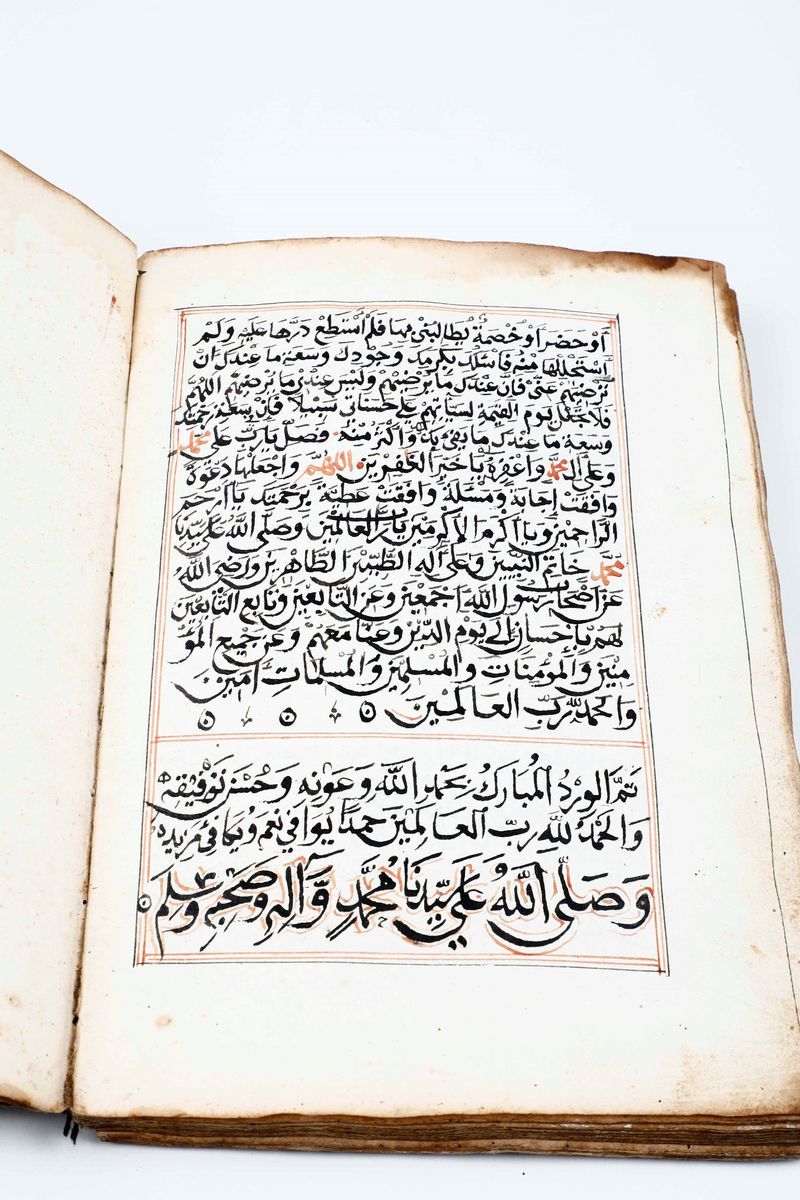 أَوْ حَضَرَ أَوْ خُصَمَةٍ يُطَالِبُنِيْ بِهَا فَلَمْ أَسْتَطِعْ رَدَّهَا عَلَيْهِ وَلَمْ
أَسْتَحْلِلْهَا مِنْهُ فَاسْئَلُكَ بِكَرَمِكَ وَجُوْدِكَ وَسَعَةِ مَا عِنْدَكَ اَنْ
تُرْضِيَهُمْ عَنِّيْ فَاِنَّ عِنْدَكَ مَا يُرْضِيْهِمْ وَلَيْسَ عِنْدِيْ مَا يُرْضِيْهِمْ اَللّٰهُمَّ
فَلَا تَجْعَلْ يَوْمَ الْقِيٰمَةِ لِسَيِّاٰتِهِمْ عَلٰى حَسَنَاتِيْ سَبِيْلًا فَاِنَّ سَعَةَ رَحْمَتِكَ
وَسَعَةَ مَا عِنْدَكَ مَا يَفِيْ بِهِ وَاَكْثَرُ مِنْهُ وَصَلِّ يَا رَبِّ عَلٰى مُحَمَّدٍ
وَعَلٰى اٰلِ مُحَمَّدٍ وَاغْفِرْهُ يَا خَيْرَ الْغٰفِرِيْنَ اَللّٰهُمَّ وَاجْعَلْهَا دَعْوَةً
وَافَقَتْ اِجَابَةً وَمَسْئَلَةً وَافَقَتْ عَطِيَّةً بِرَحْمَتِكَ يَا اَرْحَمَ
الرَّاحِمِيْنَ وَيَا اَكْرَمَ الْاَكْرَمِيْنَ يَا رَبَّ الْعَالَمِيْنَ وَصَلَّى اللّٰهُ عَلٰى سَيِّدِنَا
مُحَمَّدٍ خَاتَمِ النَّبِيِّيْنَ وَعَلٰى اٰلِهِ الطَّيِّبِيْنَ الطَّاهِرِيْنَ وَرَضِيَ اللّٰهُ
عَنْ اَصْحَابِ رَسُوْلِ اللّٰهِ اَجْمَعِيْنَ وَعَنِ التَّابِعِيْنَ وَتَابِعِ التَّابِعِيْنَ
لَهُمْ بِاِحْسَانٍ اِلٰى يَوْمِ الدِّيْنِ وَعَنَّا مَعَهُمْ وَعَنْ جَمِيْعِ الْمُؤْ
مِنِيْنَ وَالْمُؤْمِنَاتِ وَالْمُسْلِمِيْنَ وَالْمُسْلِمَاتِ اٰمِيْنَ
وَالْحَمْدُ لِلّٰهِ رَبِّ الْعَالَمِيْنَ
تَمَّ الْوِرْدُ الْمُبَارَكُ بِحَمْدِ اللّٰهِ وَعَوْنِهِ وَحُسْنِ تَوْفِيْقِهِ
وَالْحَمْدُ لِلّٰهِ رَبِّ الْعَالَمِيْنَ حَمْدًا يُوَافِيْ نِعَمَهُ وَيُكَافِئُ مَزِيْدَهُ
وَصَلَّى اللّٰهُ عَلٰى سَيِّدِنَا مُحَمَّدٍ وَّاٰلِهِ وَصَحْبِهِ وَسَلَّمَ